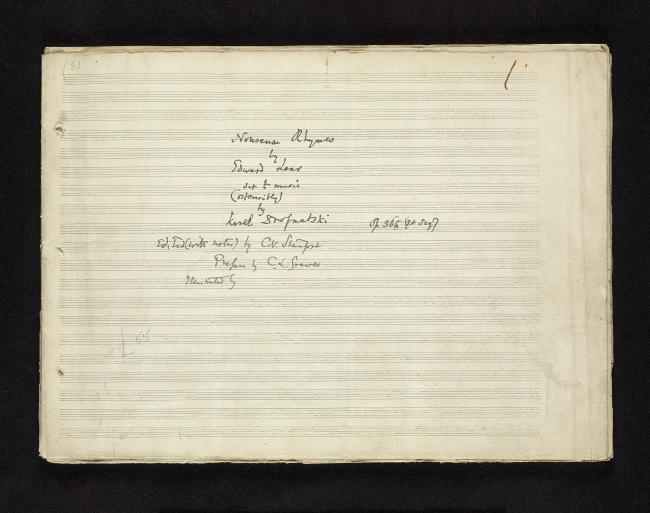 Nonsense Rhymes
by
Edward Lear
set to music
(ostensibly)
by
Karel Drofnatski Op. 365 (et seq)
Edited (with notes) by C.V. Stanford
Preface by C.L. Graves
Illustrated by